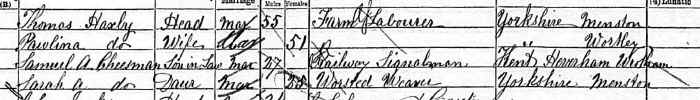 (B) Marriage Males Females (4) Lunatic
Thomas Haxby Head Mar 55 Farm Labourer Yorkshire Menston
Pawlina do Wife Mar 51 " Wortley
Samuel A. Cheesman Son in Law Mar 27 Railway Signalman Kent Heverham
Sarah A. do Daur Mar 25 Worsted Weaver Yorkshire Menston